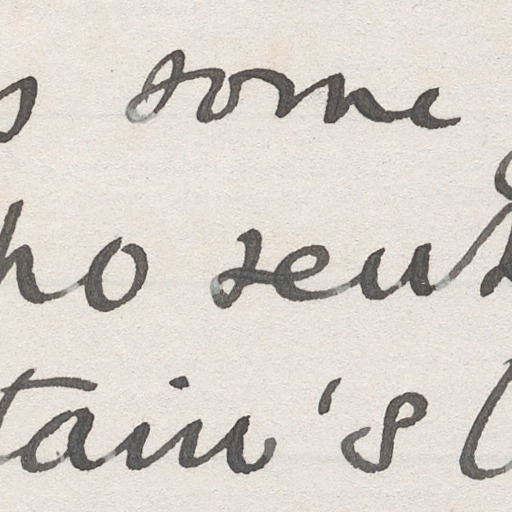 s some
ho sent
tain's